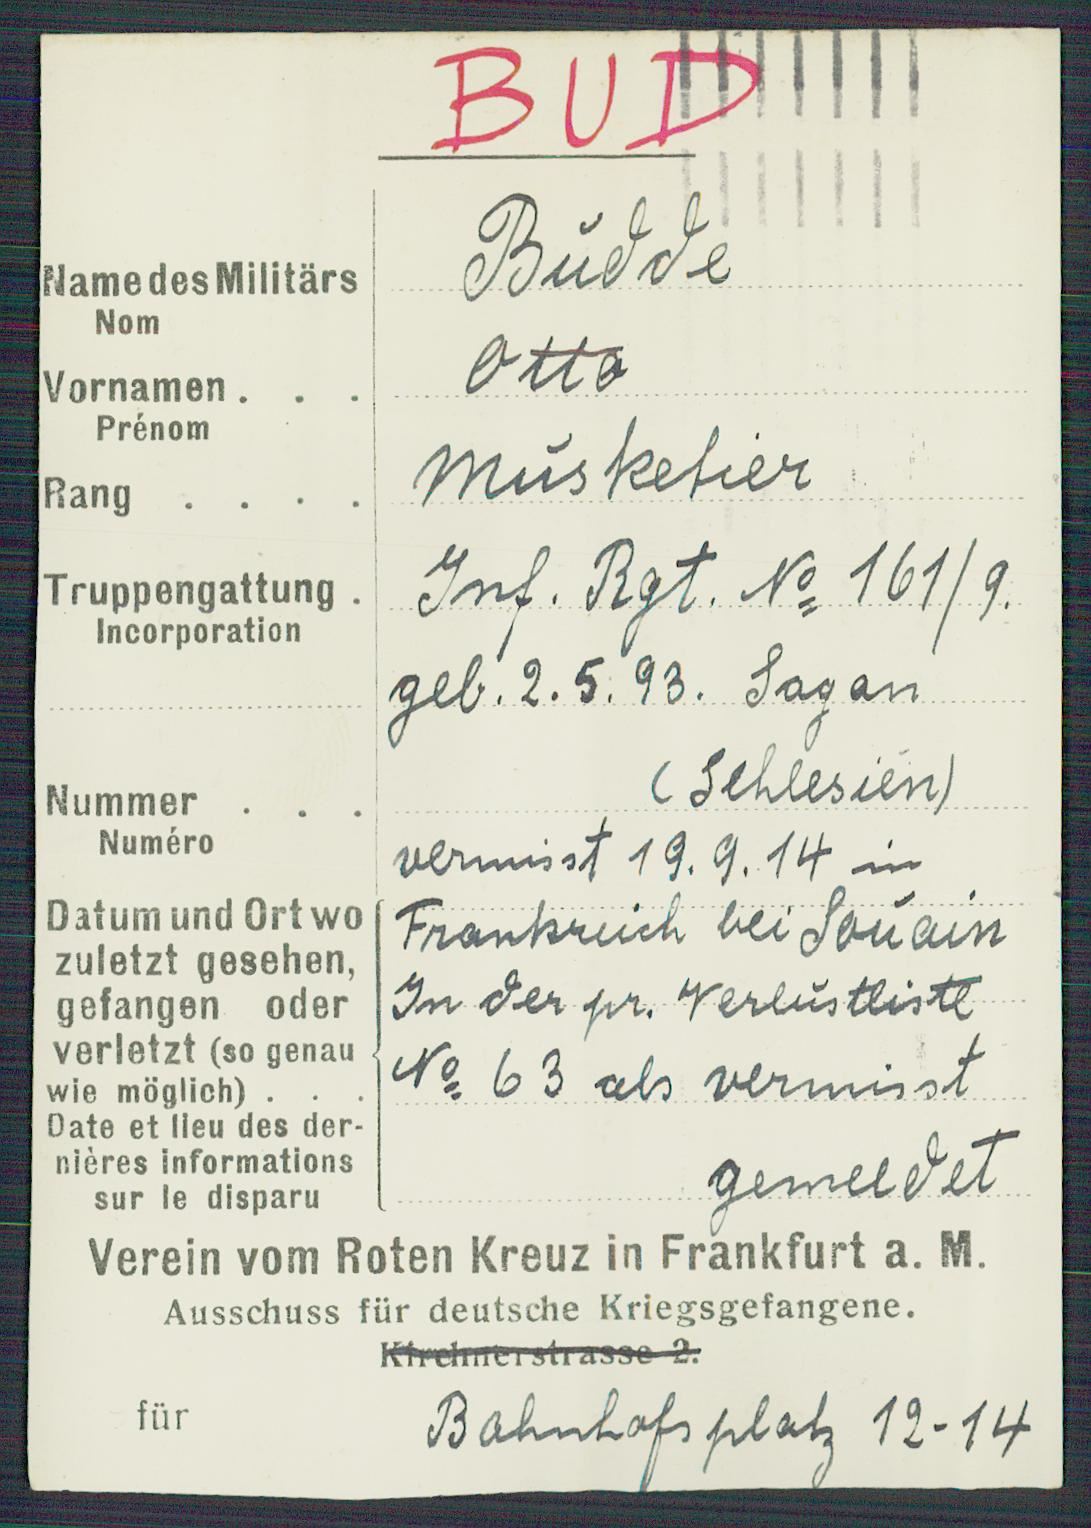 BUD
Name des Militärs Budde
Nom
Vornamen . . . Otto
Prénom
Rang . . . . Musketier
Truppengattung . Inf. Rgt. No 161/9.
Incorporation
geb. 2.5.93. Sagan
(Schlesien)
Nummer . . .
Numéro
vermisst 19.9.14 in
Datum und Ort wo Frankreich bei Souain
zuletzt gesehen,
gefangen oder In der pr. Verlustliste
verletzt (so genau
wie möglich) . . . No 63 als vermisst
Date et lieu des der-
nières informations gemeldet
sur le disparu
Verein vom Roten Kreuz in Frankfurt a. M.
Ausschuss für deutsche Kriegsgefangene.
Kirchnerstrasse 2.
für Bahnhofsplatz 12-14